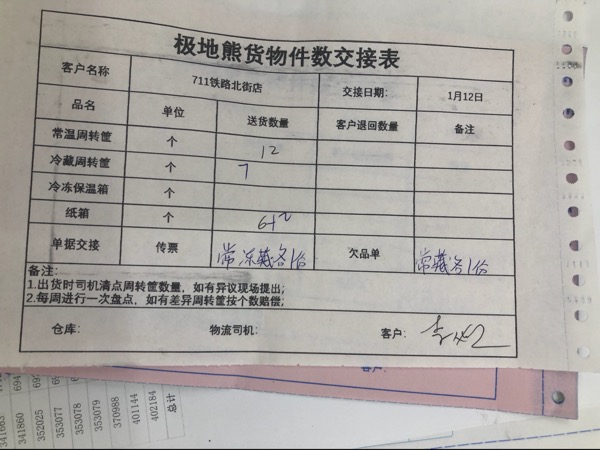 极地熊货物件数交接表
客户名称 711铁路北街店 交接日期: 1月12日
品名 单位 送货数量 客户退回数量 备注
常温周转筐 个 12
冷藏周转筐 个 7
冷冻保温箱 个
纸箱 个 6+2
单据交接 传票 常冻藏各1份 欠品单 常藏各1份
备注:
1.出货时司机清点周转筐数量,如有异议现场提出;
2.每周进行一次盘点,如有差异周转筐按个数赔偿;
仓库: 物流司机: 客户:
客户:
341860
352025
353077
353078
353079
370988
401144
402184
总计